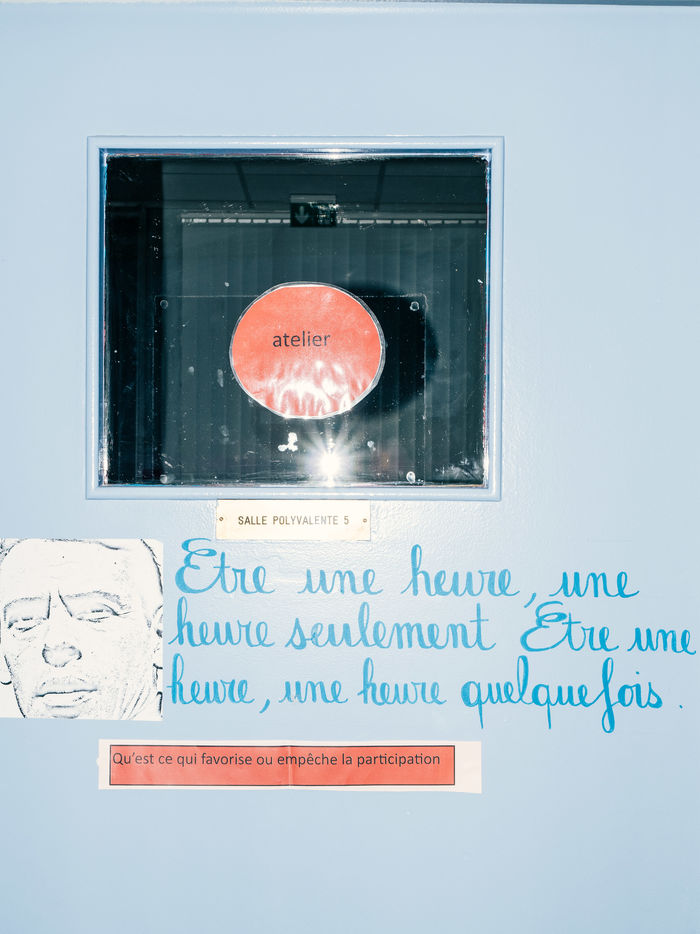 atelier
SALLE POLYVALENTE 5
Etre une heure, une
heure seulement Etre une
heure, une heure quelquefois.
Qu'est ce qui favorise ou empêche la participation